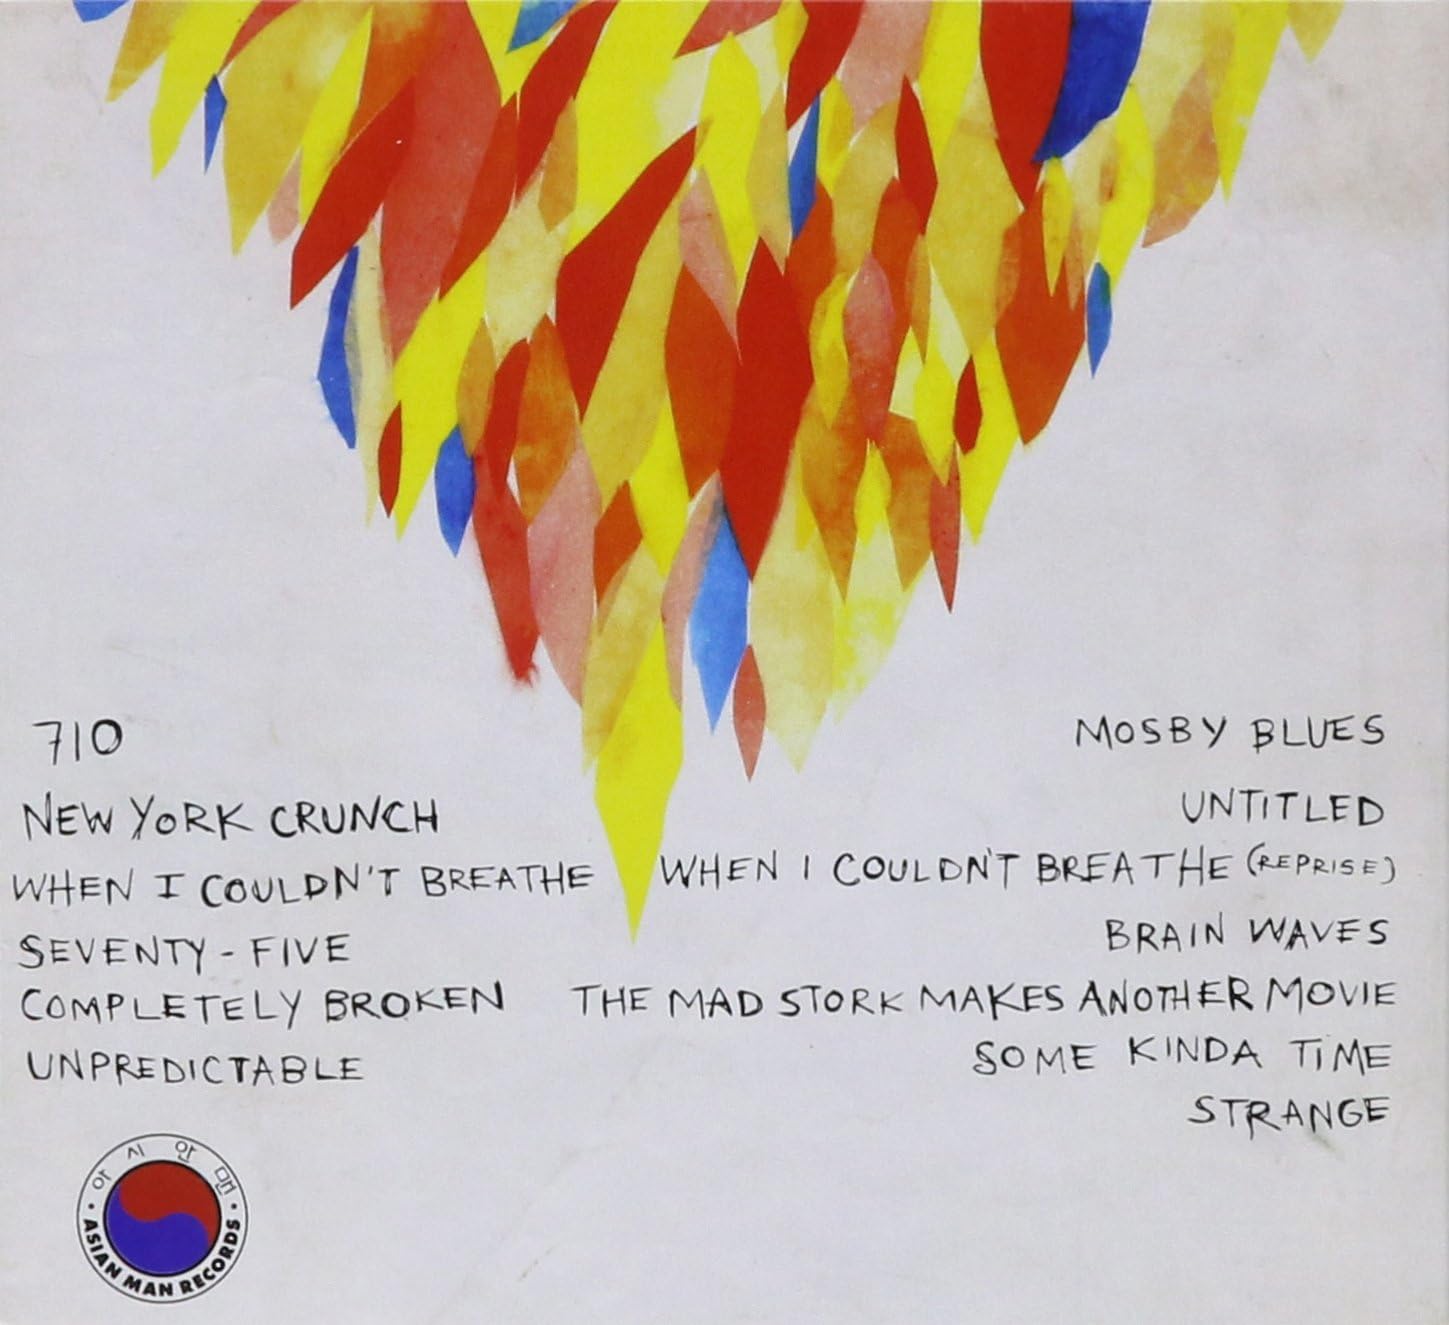 710
NEW YORK CRUNCH
WHEN I COULDN'T BREATHE
SEVENTY-FIVE
COMPLETELY BROKEN
UNPREDICTABLE
MOSBY BLUES
UNTITLED
WHEN I COULDN'T BREATHE (REPRISE)
BRAIN WAVES
THE MAD STORK MAKES ANOTHER MOVIE
SOME KINDA TIME
STRANGE
아시안맨
• ASIAN MAN RECORDS •